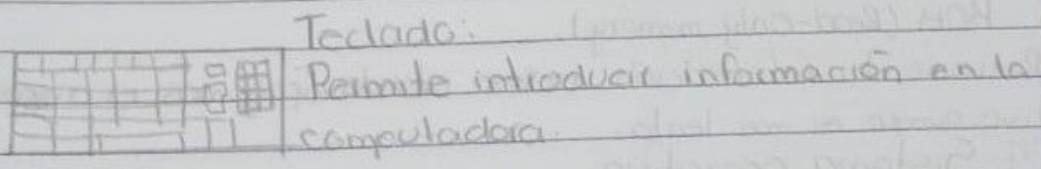 Teclado:
Permite introducir información en la
computadora